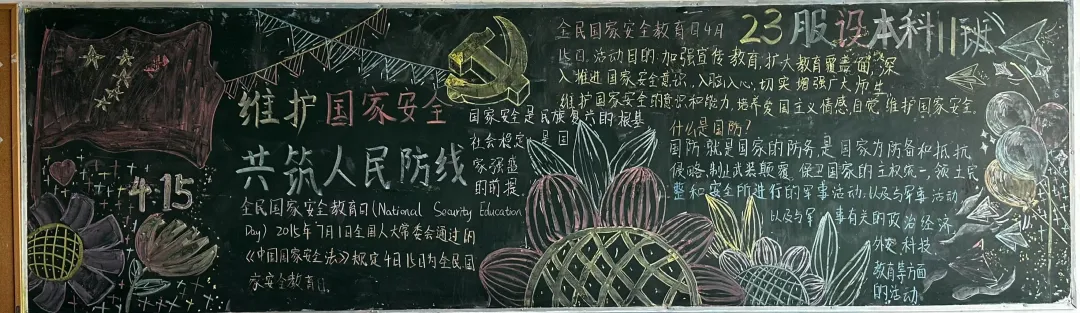 维护国家安全
共筑人民防线
4.15
全民国家安全教育日(National Security Education
Day) 2015年7月1日全国人大常委会通过的
《中国国家安全法》规定4月15日为全民国
家安全教育日。
国家安全是民族复兴的根基
社会稳定是国
家强盛
的前提
23服设本科11班
全民国家安全教育日4月
15日,活动目的:加强宣传教育,扩大教育覆盖面,深
入推进国家安全意识,入脑入心,切实增强广大师生
维护国家安全的意识和能力,培养爱国主义情感,自觉维护国家安全.
什么是国防?
国防就是国家的防务,是国家为防备和抵抗
侵略,制止武装颠覆,保卫国家的主权统一,领土完
整和安全所进行的军事活动,以及与军事活动
以及与军事有关的政治经济
外交科技
教育等方面
的活动.